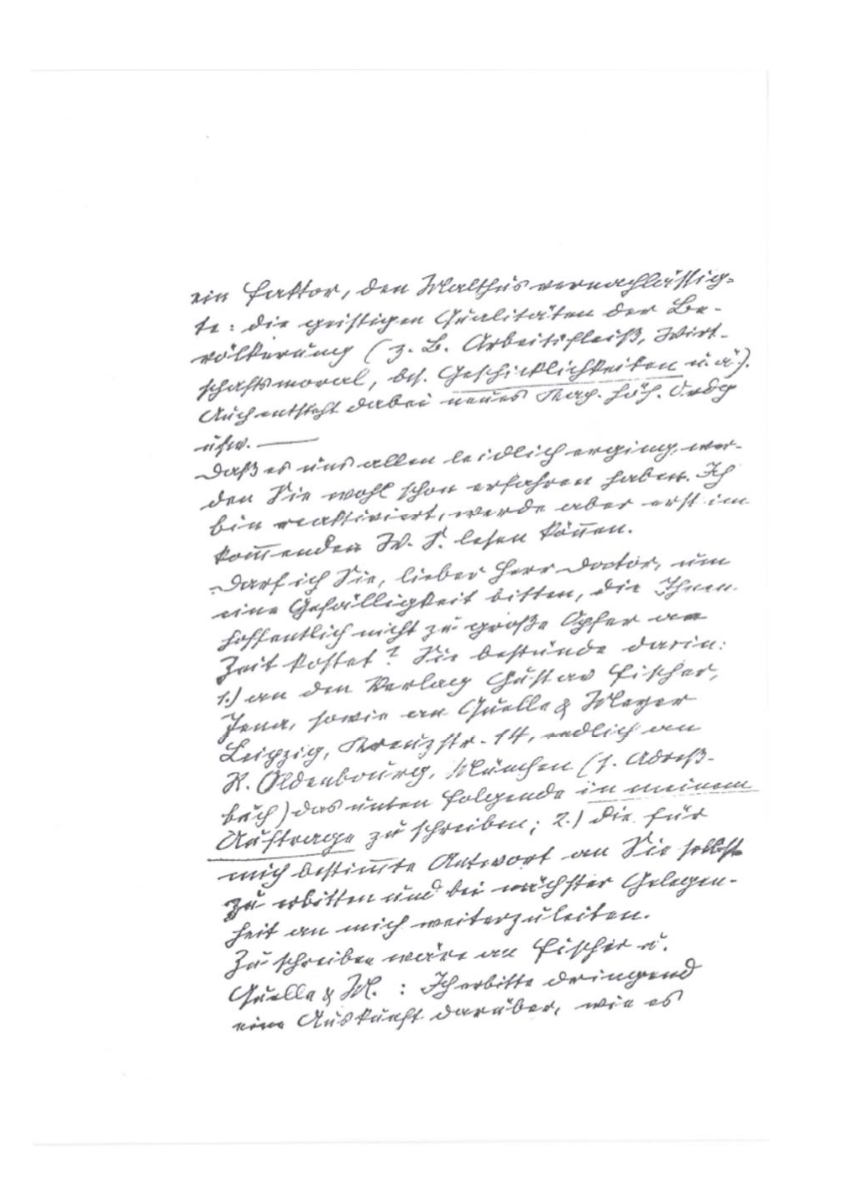 ein Faktor, den Malthus vernachlässig-
te: die geistigen Qualitäten der Be-
völkerung (z. B. Arbeitsfleiß, Wirt-
schaftsmoral, bes. Geschicklichkeiten u. ä.).
Auch entsteht dabei neues Kap. höh. Ordg
usw. —
Daß es uns allen leidlich erging, wer-
den Sie wohl schon erfahren haben. Ich
bin reaktiviert, werde aber erst im
kommenden W. S. lesen können.
Darf ich Sie, lieber Herr Doctor, um
eine Gefälligkeit bitten, die Ihnen
hoffentlich nicht zu große Opfer an
Zeit kostet? Sie bestünde darin:
1.) an den Verlag Gustav Fischer,
Jena, sowie an Quelle & Meyer
Leipzig, Kreuzstr. 14, endlich an
R. Oldenbourg, München (s. Adreß-
buch) das unten folgende in meinem
Auftrage zu schreiben; 2.) die für
mich bestimmte Antwort an Sie selbst
zu erbitten und bei nächster Gelegen-
heit an mich weiterzuleiten.
Zu schreiben wäre an Fischer u.
Quelle & M. : Ich erbitte dringend
eine Auskunft darüber, wie es